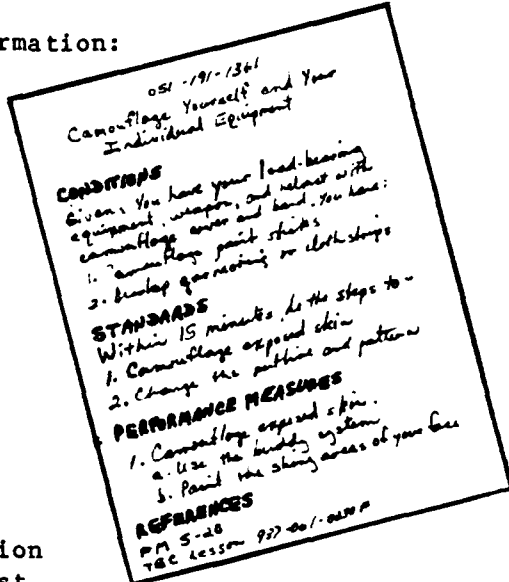 rmation:
051-191-1361
Camouflage Yourself and Your
Individual Equipment
CONDITIONS
Given, You have your load-bearing
equipment, weapon, and helmet with
camouflage cover and band. You have:
1. Camouflage paint sticks
2. burlap garnishing or cloth strips
STANDARDS
Within 15 minutes, do the steps to-
1. Camouflage exposed skin
2. Change the outline and pattern
PERFORMANCE MEASURES
1. Camouflage exposed skin.
a. Use the buddy system
b. Paint the shiny areas of your face
REFERENCES
FM 5-20
TEC Lesson 937-061-
ion
st